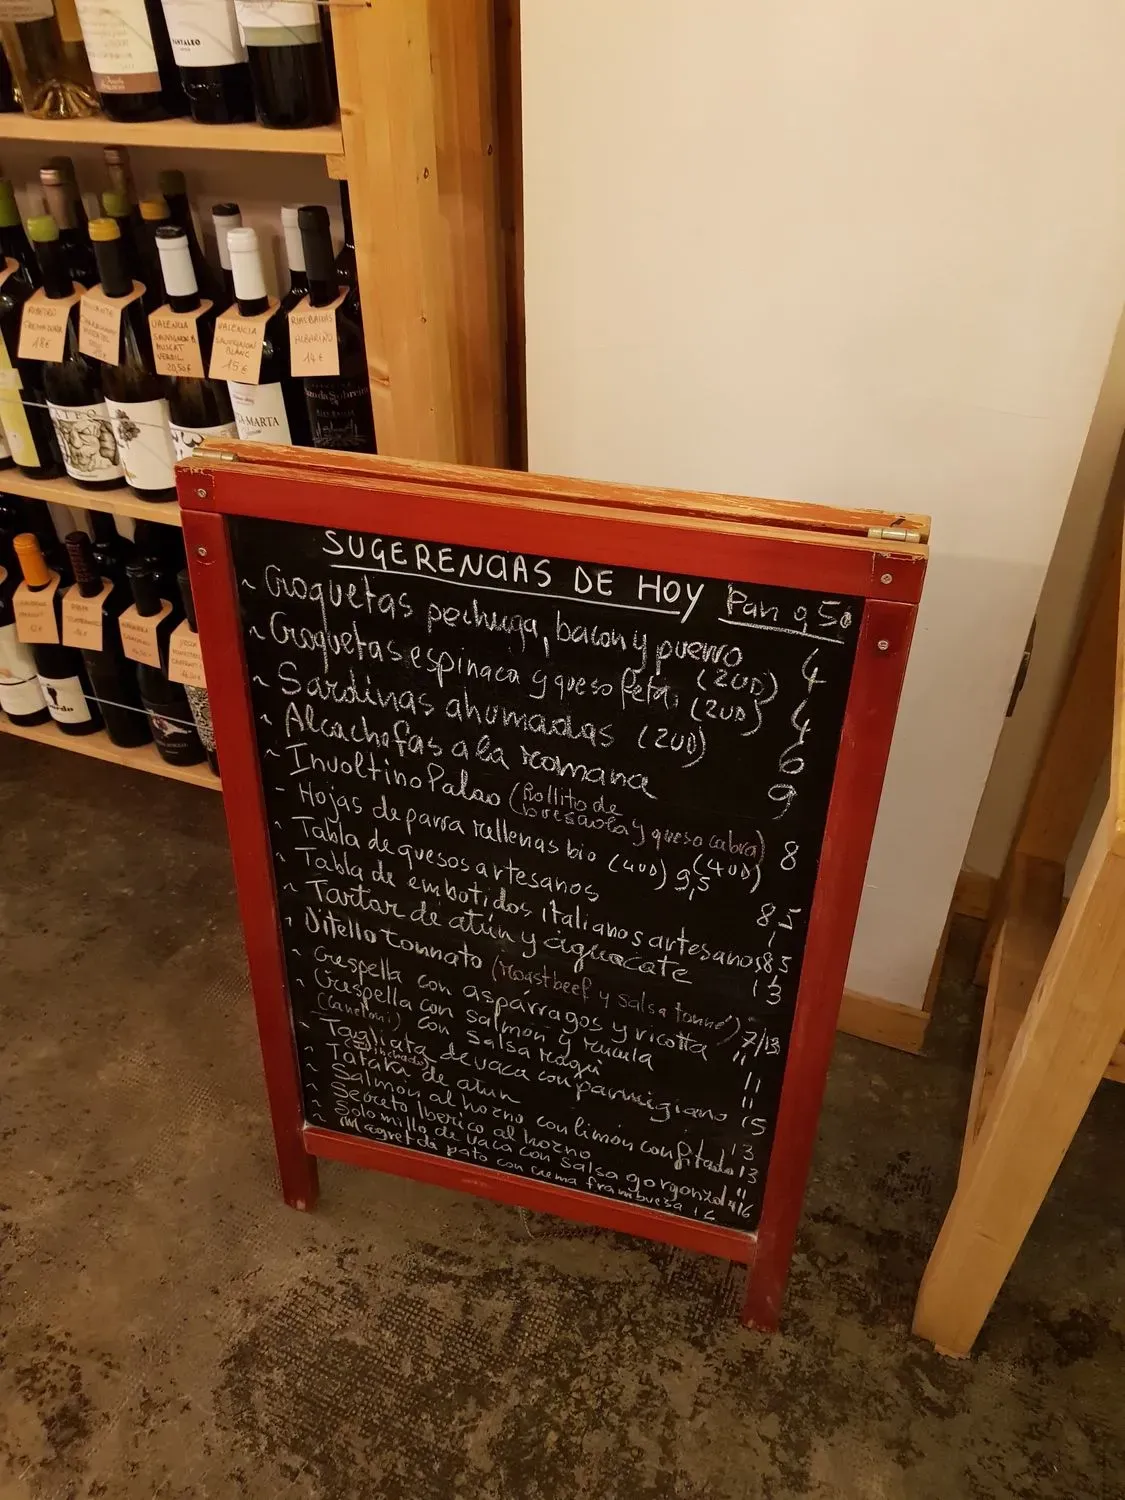 PANTALEO
RIBEIRO
18€
VALENCIA
SAUVIGNON B
MUSCAT
VERDIL
20,50€
VALENCIA
SAUVIGNON
BLANC
15€
RIAS BAIXAS
ALBARIÑO
14€
MARTA
SUGERENCIAS DE HOY Pan 0,50
~ Croquetas pechuga, bacon y puerro (2UD) 4
~ Croquetas espinaca y queso feta (2UD) 4
~ Sardinas ahumadas (2UD) 6
~ Alcachofas a la romana 9
~ Involtino Palao (Rollito de bresaola y queso cabra) (4UD) 8
- Hojas de parra rellenas bio (4UD) 9,5
~ Tabla de quesos artesanos 8,5
~ Tabla de embotidos italianos artesanos 8,5
~ Tartar de atún y aguacate 13
~ Vitello tonnato (roastbeef y salsa tonné) 7/13
~ Crespella con aspárragos y ricotta "
~ Crespella con salmón y rucula 11
(Caneloni) con salsa ragú "
~ Tagliata de vaca con parmigiano 15
~ Tataki de atun 13
~ Salmon al horno con limón confitado 13
~ Secreto Iberico al horno "
~ Solomillo de vaca con salsa gorgonzola 16
~ Magret de pato con crema frambuesa 16